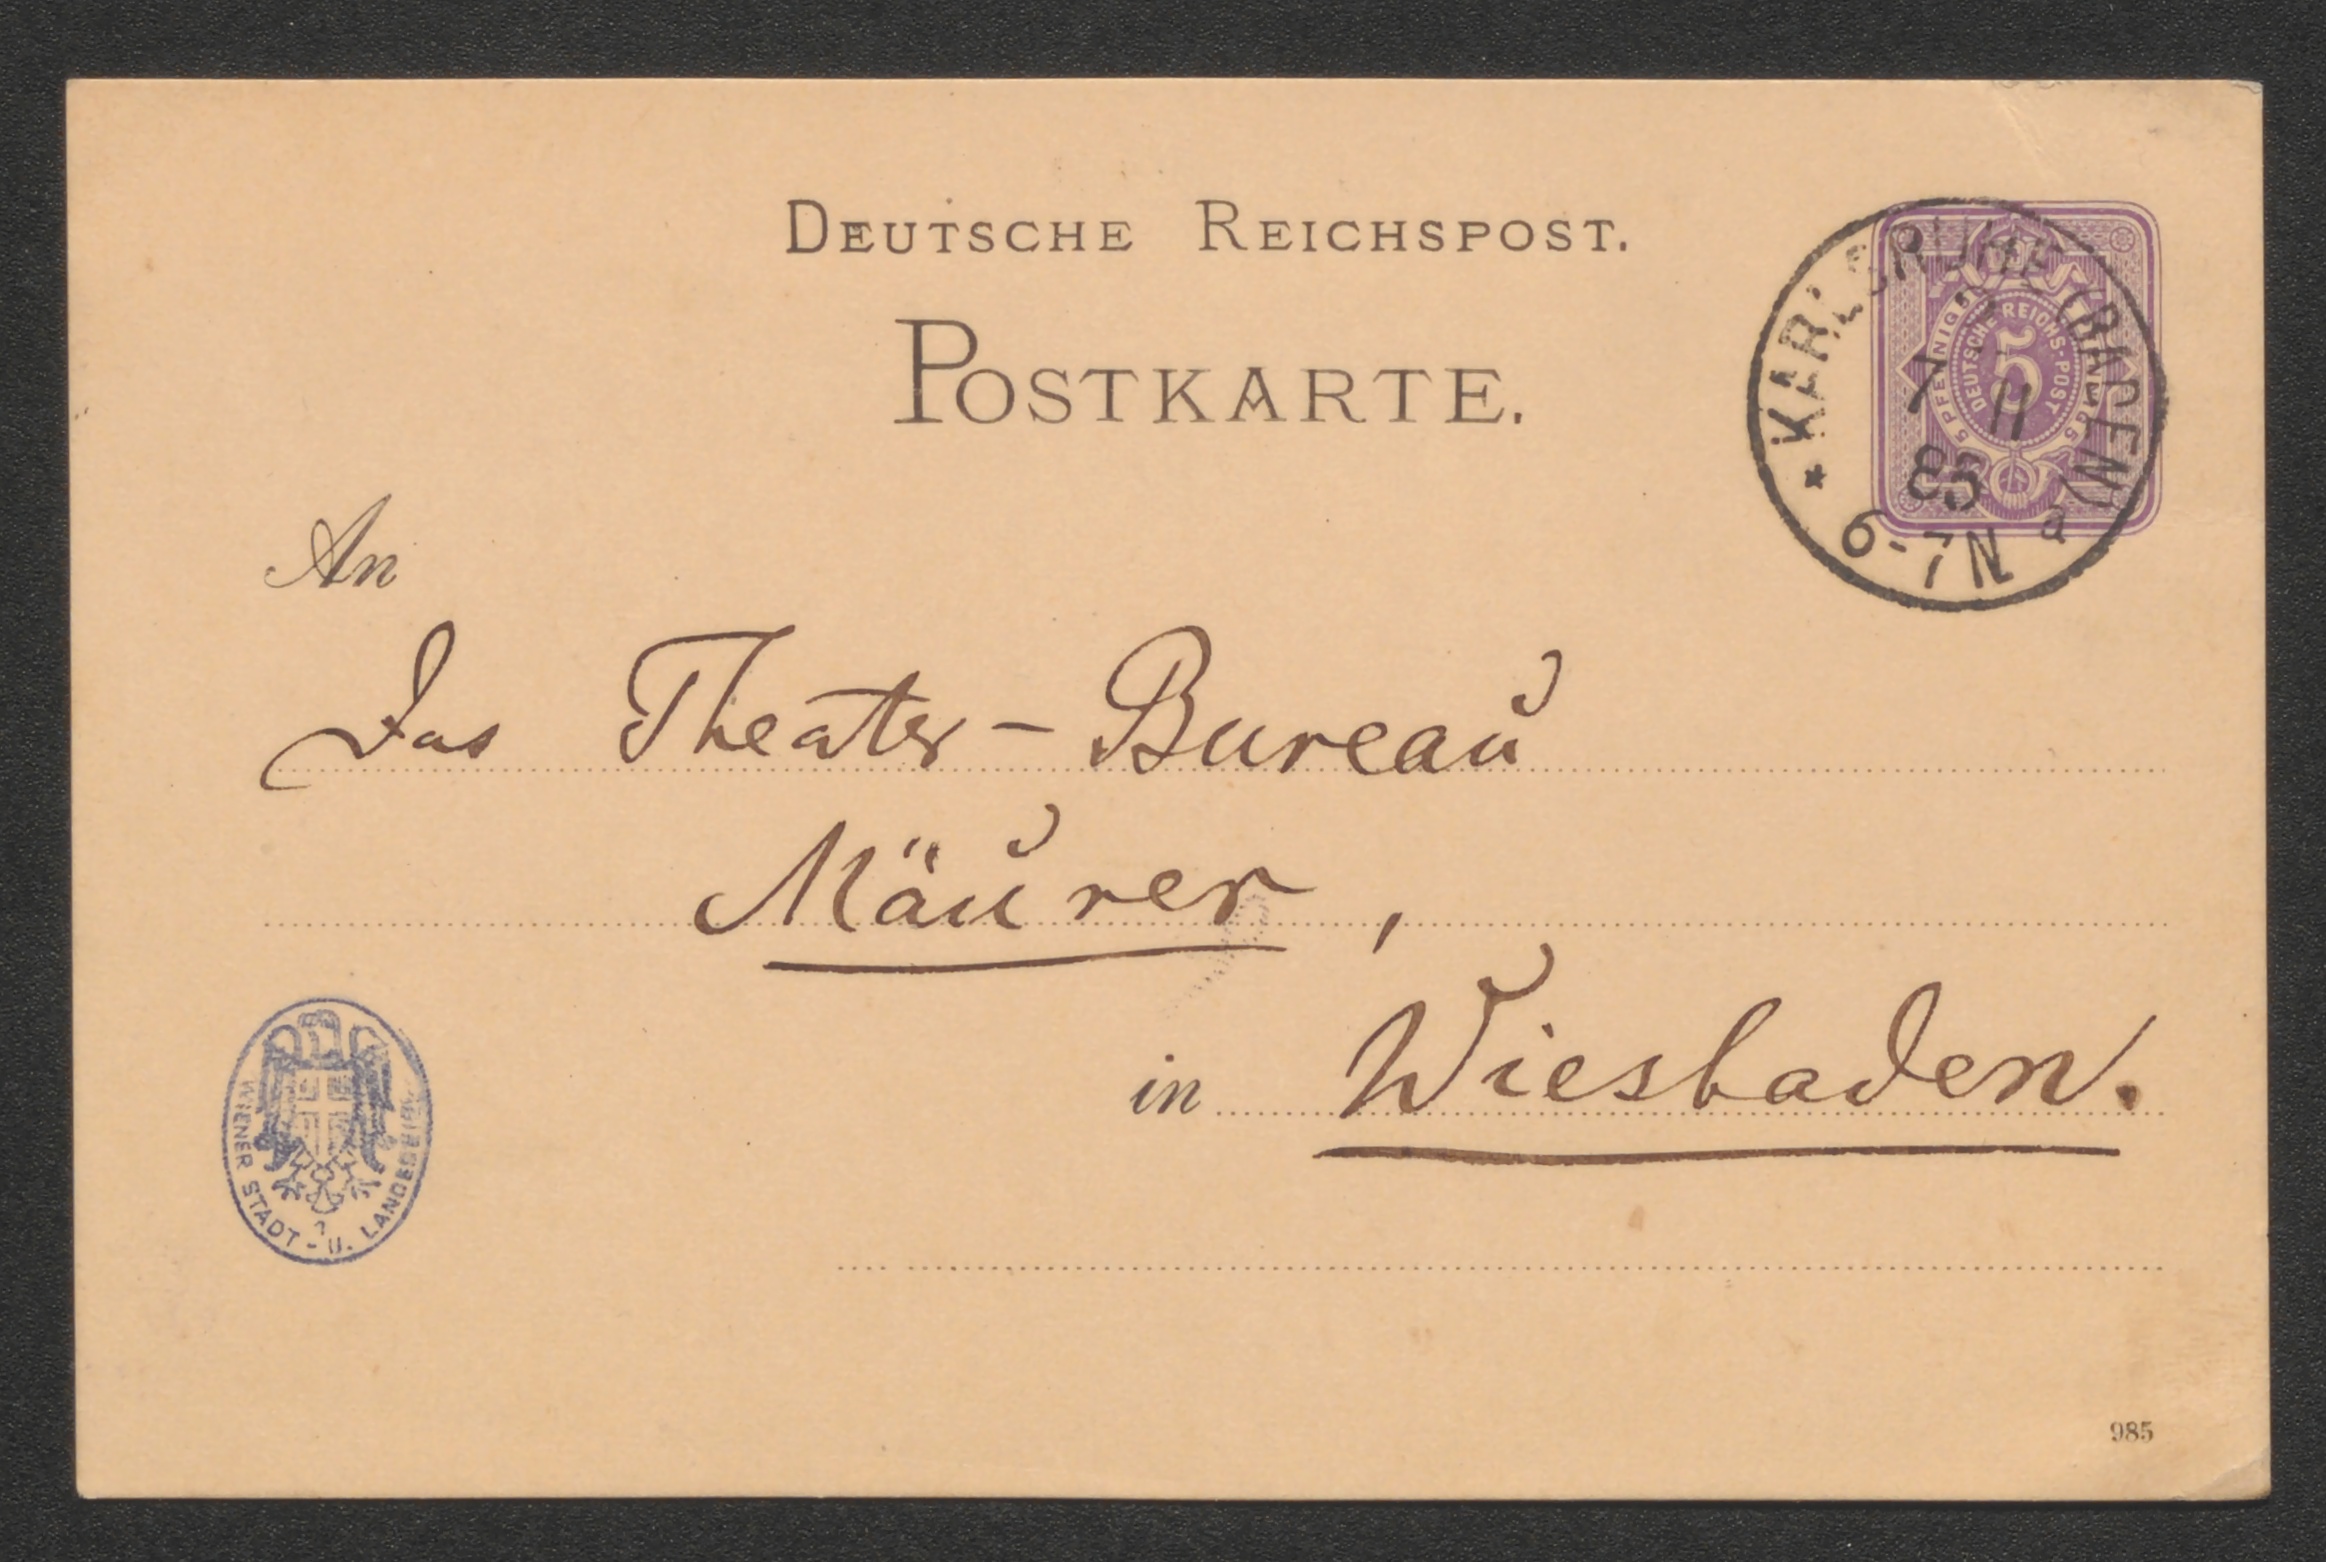 DEUTSCHE REICHSPOST.
POSTKARTE.
KARLSRUHE (BADEN)
7 11
85
6-7N a
5 PFENNIG
DEUTSCHE REICHS-POST
5
An
Das Theater-Bureau
Mäurer,
in Wiesbaden.
WIENER STADT- U. LANDESBIBL
985